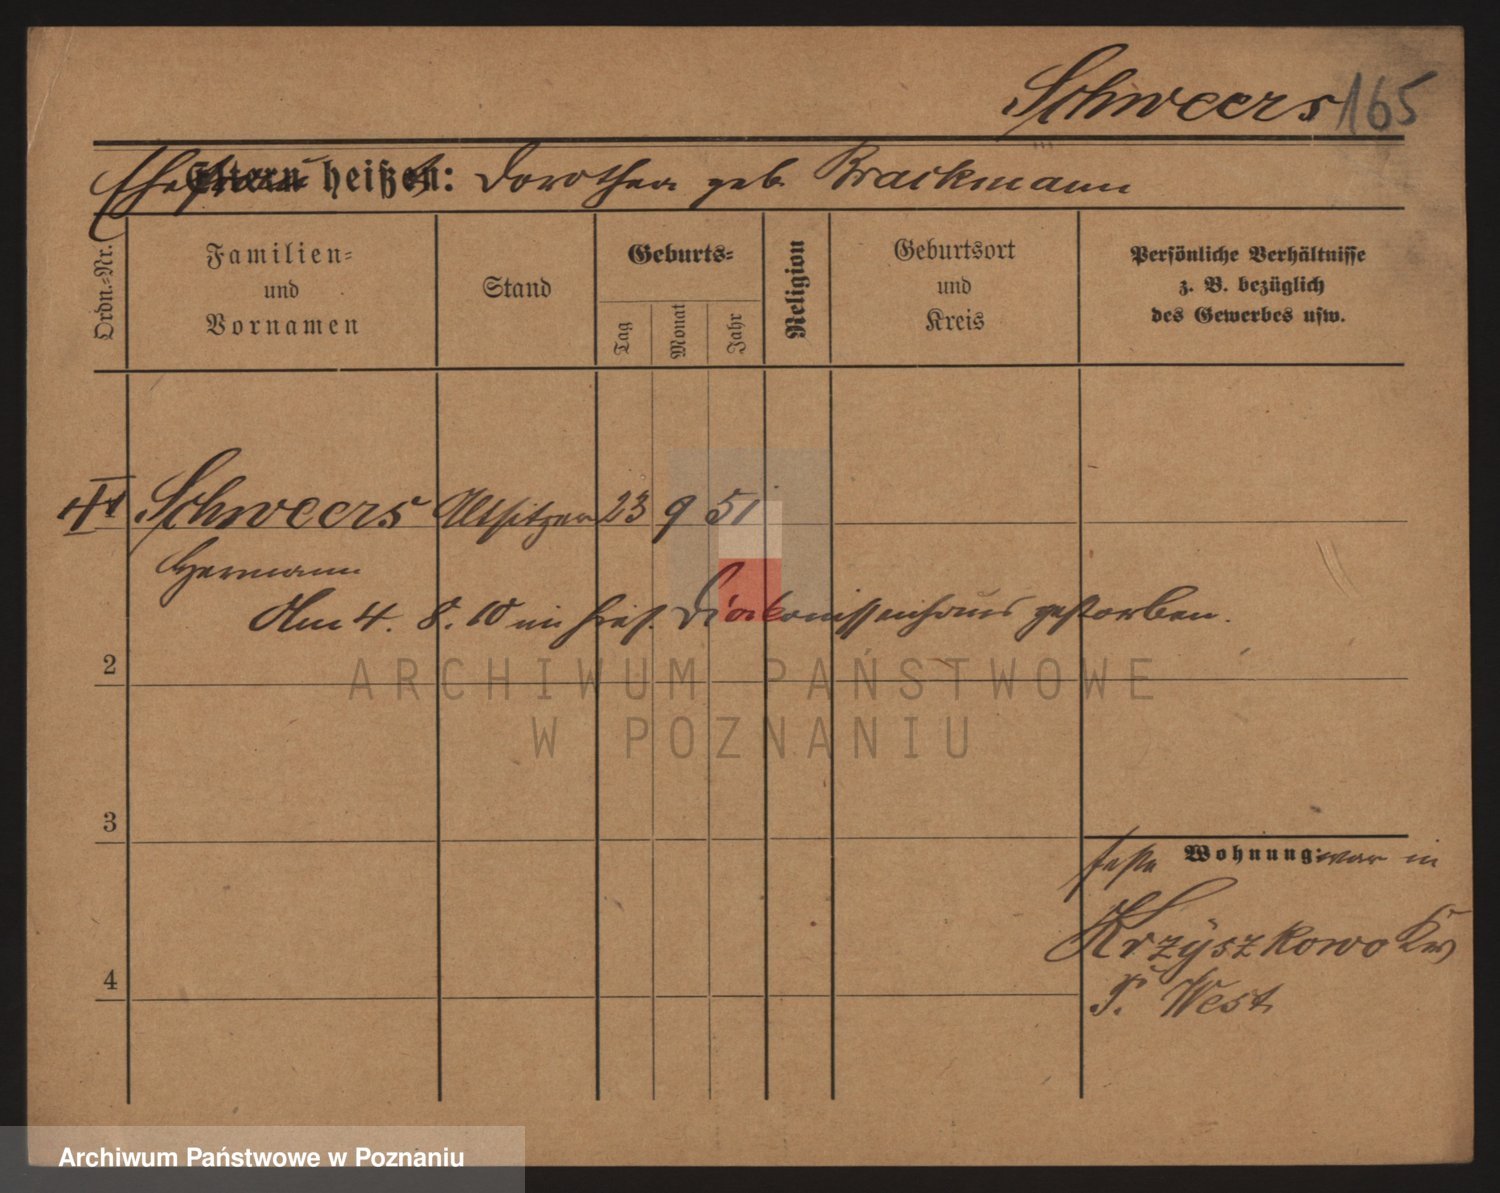 Schweers 165
Ehefrau heißt: Dorothea geb. Brackmann
Ordn.-Nr.
Familien-
und
Vornamen
Stand
Geburts-
Tag
Monat
Jahr
Religion
Geburtsort
und
Kreis
Persönliche Verhältnisse
z. B. bezüglich
des Gewerbes usw.
1 Schweers Altsitzer 23 9 51
Hermann
Am 4. 8. 10 im hies. Diakonissenhaus gestorben.
2
ARCHIWUM PAŃSTWOWE
W POZNANIU
3
feste Wohnung: war in
Krzyszkowo Kr
P. West
4
Archiwum Państwowe w Poznaniu